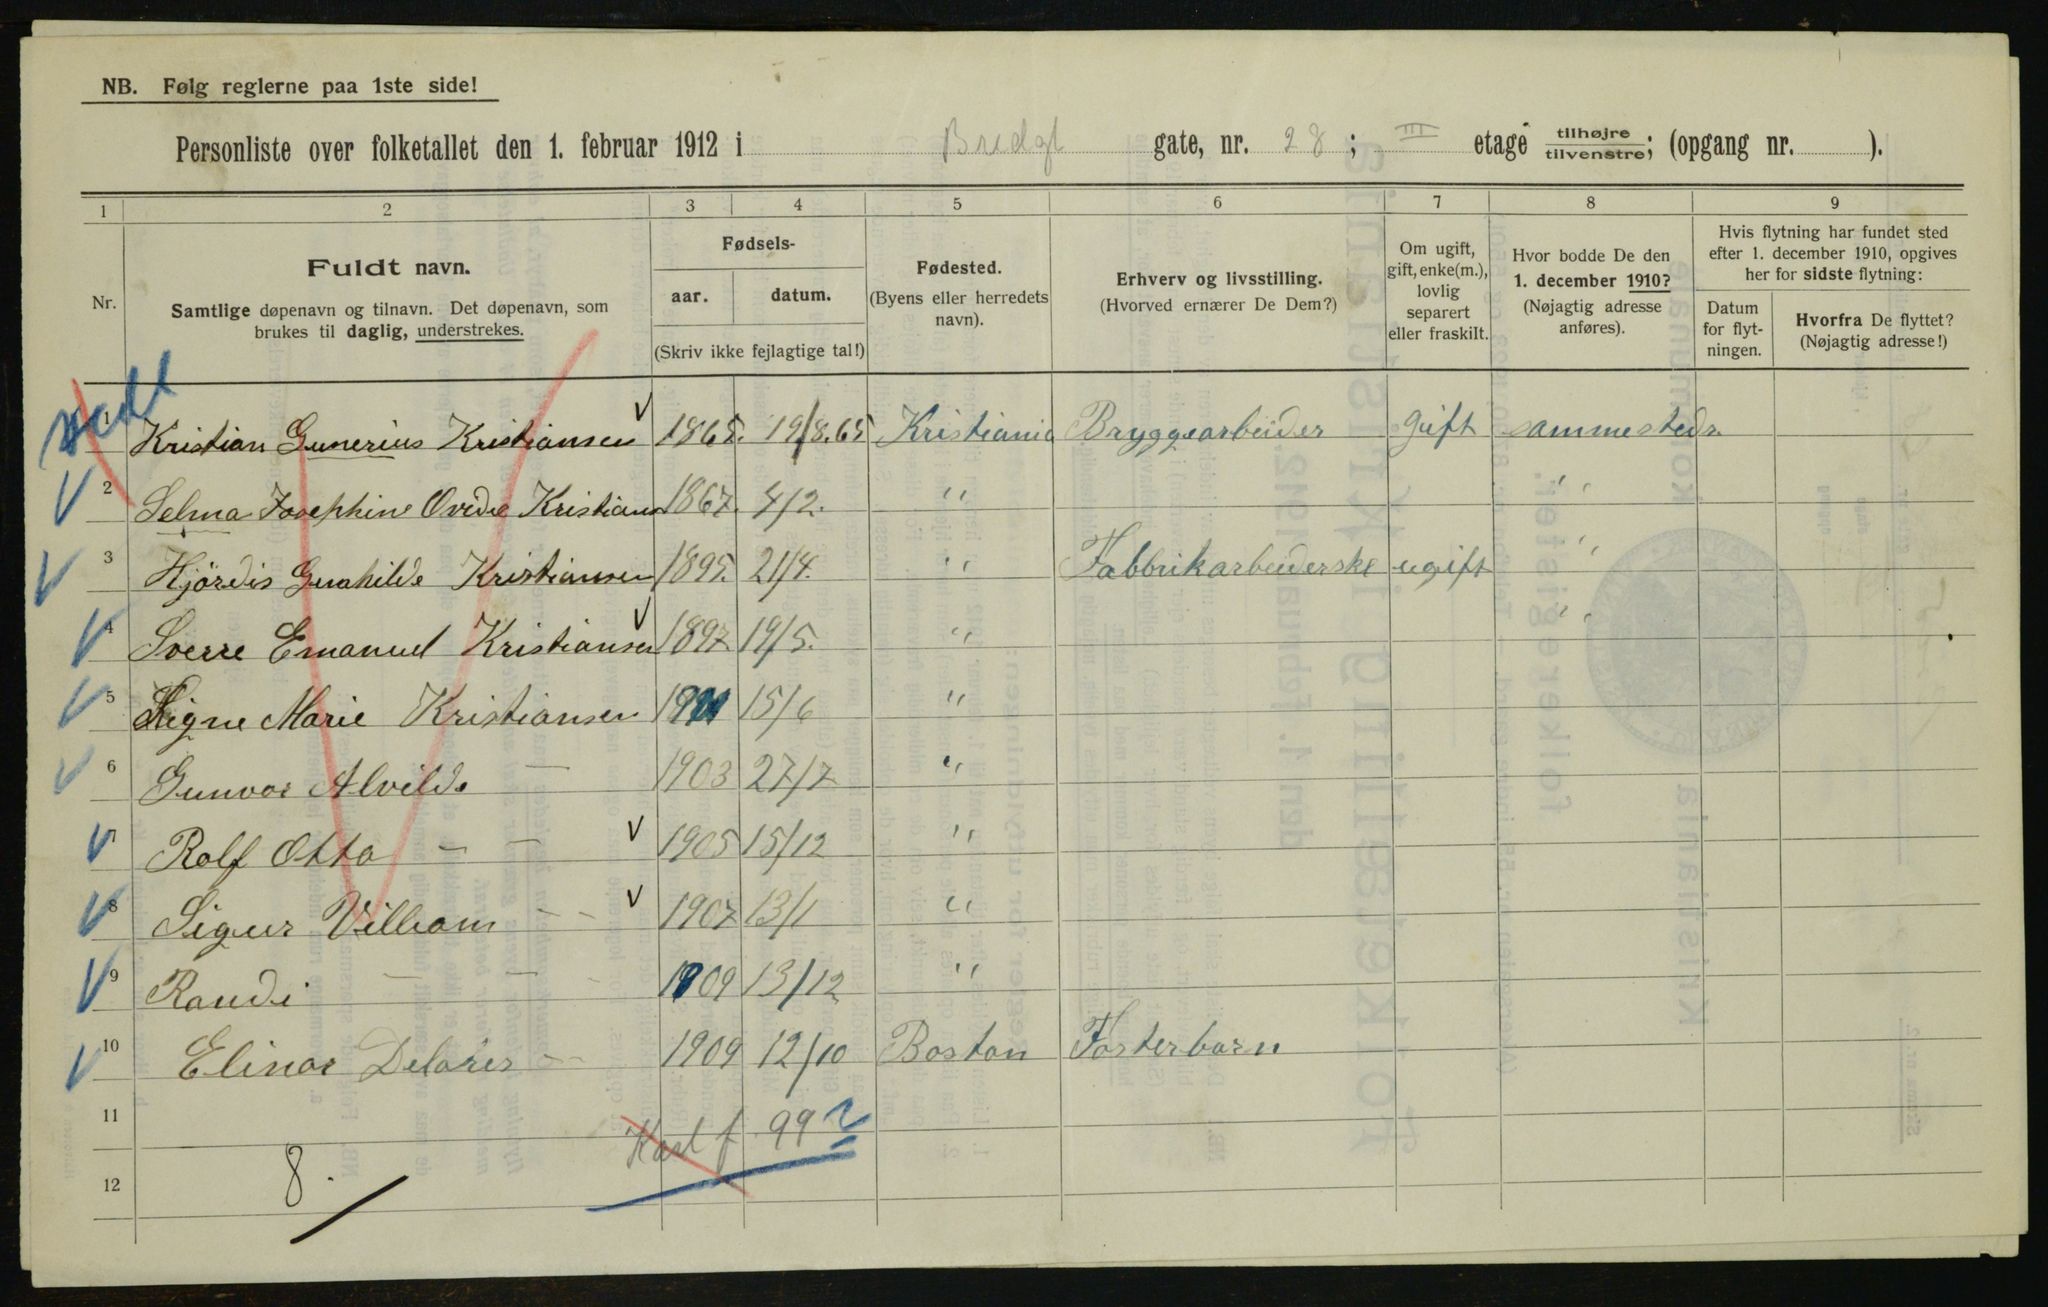 NB. Følg reglerne paa 1ste side!
Personliste over folketallet den 1. februar 1912 i Bredgt gate, nr. 28; III etage tilhøjre tilvenstre; (opgang nr. ).
1 2 3 4 5 6 7 8 9
Nr.
Fuldt navn.
Samtlige døpenavn og tilnavn. Det døpenavn, som
brukes til daglig, understrekes.
Fødsels-
aar. datum.
(Skriv ikke fejlagtige tal!)
Fødested.
(Byens eller herredets
navn).
Erhverv og livsstilling.
(Hvorved ernærer De Dem?)
Om ugift,
gift, enke(m.),
lovlig
separert
eller fraskilt.
Hvor bodde De den
1. december 1910?
(Nøjagtig adresse
anføres).
Hvis flytning har fundet sted
efter 1. december 1910, opgives
her for sidste flytning:
Datum
for flyt-
ningen.
Hvorfra De flyttet?
(Nøjagtig adresse!)
1 Kristian Gunerius Kristiansen 1865. 19/8.65 Kristiania Bryggearbeider gift sammesteds.
2 Selma Josephine Ovedie Kristians 1867. 4/2. " "
3 Hjördis Gunhilde Kristiansen 1895. 21/4. " Fabbrikarbeiderske ugift "
4 Sverre Emanuel Kristiansen 1897. 19/5. " "
5 Signe Marie Kristiansen 15/6 "
6 Gunvor Alvilde — 1903 27/7 "
7 Rolf Otto — — 1905 15/12 "
8 Sigur Villiam — — 1907 13/1 "
9 Randi — — 1909 13/12 "
10 Elinor Delores — 1909 12/10 Boston Fosterbarn
11 Karl f 99
12 8.